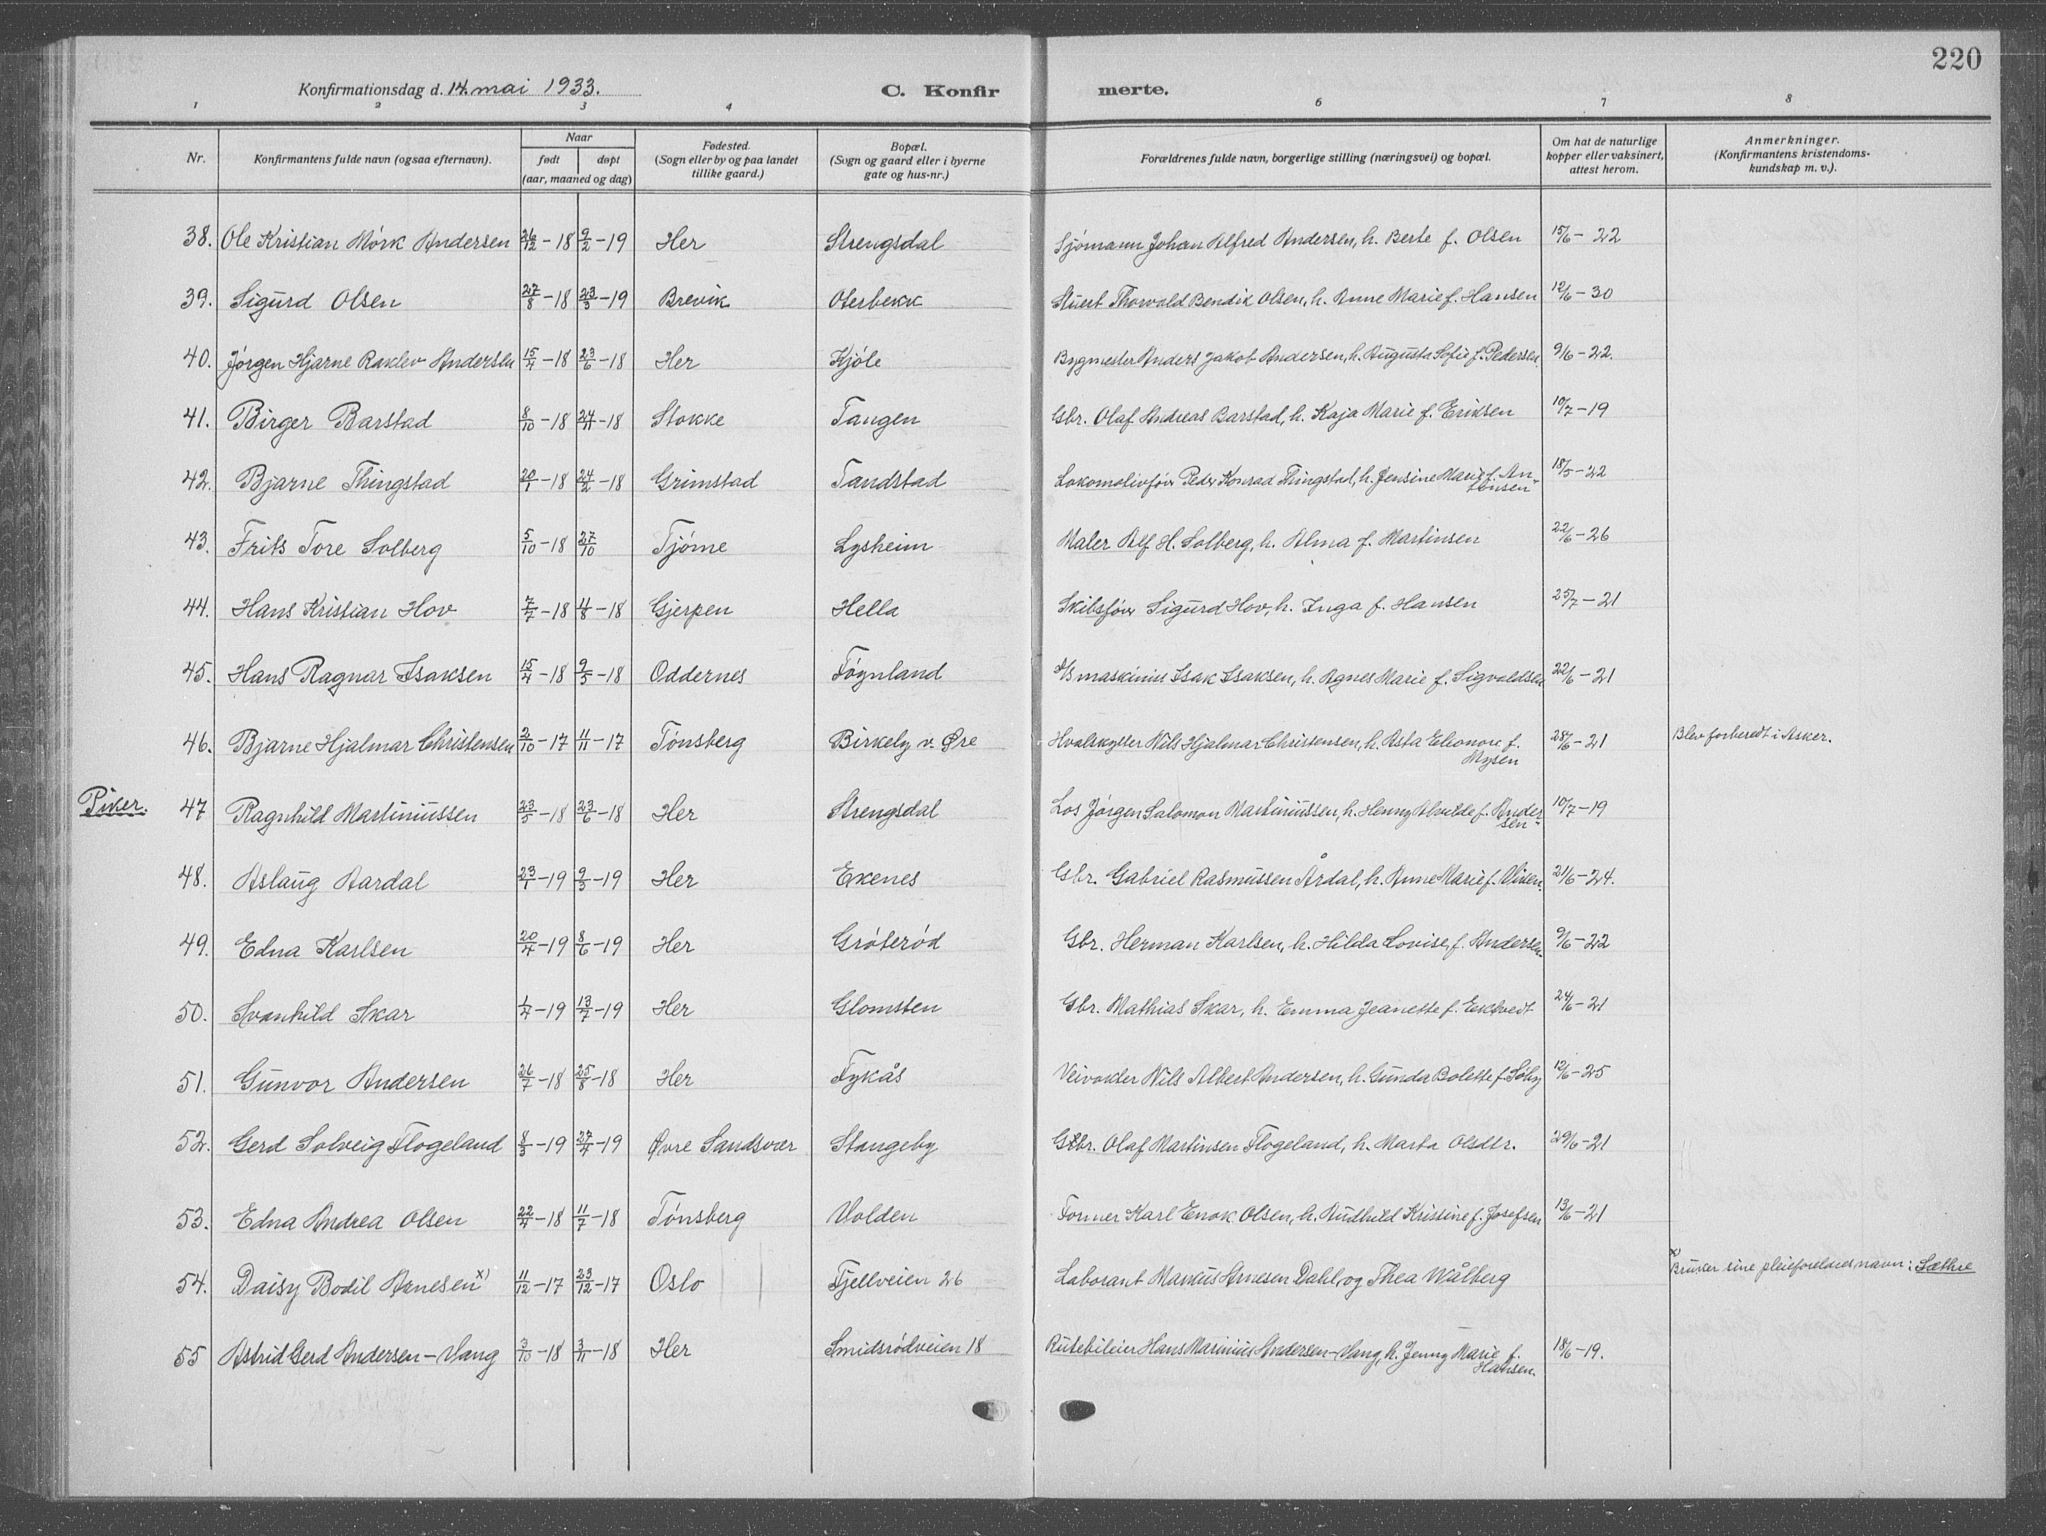 220
Konfirmationsdag d. 14. mai 1933.
C. Konfirmerte.
1 2 3 4 6 7 8
Nr.
Konfirmantens fulde navn (ogsaa efternavn).
Naar
født døpt
(aar, maaned og dag)
Fødested.
(Sogn eller by og paa landet
tillike gaard.)
Bopæl.
(Sogn og gaard eller i byerne
gate og hus-nr.)
Forældrenes fulde navn, borgerlige stilling (næringsvei) og bopæl.
Om hat de naturlige
kopper eller vaksinert,
attest herom.
Anmerkninger.
(Konfirmantens kristendoms-
kundskap m. v.).
38. Ole Kristian Mørk Andersen 26/12-18 9/2-19 Her Strengsdal Sjømann Johan Alfred Andersen, h. Berte f. Olsen 15/6-22
39. Sigurd Olsen 27/8-18 23/3-19 Brevik Oterbekk Stuert Thorvald Bendik Olsen, h. Anne Marie f. Hansen 12/6-30
40. Jørgen Hjarne Raklev Andersen 15/4-18 23/6-18 Her Kjøle Bygmester Anders Jakob Andersen, h. Augusta Sofie f. Pedersen. 9/6-22.
41. Birger Barstad 8/10-18 24/11-18 Stokke Tangen Gbr. Olaf Andreas Barstad, h. Kaja Marie f. Eriksen 10/7-19
42. Bjarne Thingstad 20/1-18 24/2-18 Grimstad Tandstad Lokomotivfør Peder Konrad Thingstad, h. Jensine Marie f. An-
tonsen 18/5-22
43. Frits Tore Solberg 5/10-18 27/10 Tjøme Lysheim Maler Alf H. Solberg, h. Alma f. Martinsen 22/6-26
44. Hans Kristian Hov 7/7-18 4/8-18 Gjerpen Hella Skibsfører Sigurd Hov, h. Inga f. Hansen 25/7-21
45. Hans Ragnar Isaksen 15/4-18 9/5-18 Oddernes Føynland maskinist Isak Isaksen, h. Agnes Marie f. Sigvaldsen 22/6-21
46. Bjarne Hjalmar Christensen 2/10-17 11/11-17 Tønsberg Birkely v. Øre Hvalskytter Nils Hjalmar Christensen, h. Asta Eleonore f.
Mysen 28/6-21 Blev forberedt i Asker.
Piker. 47 Ragnhild Martiniussen 23/5-18 23/6-18 Her Strengsdal Los Jørgen Salomon Martiniussen, h. Henny Alvilde f. Ander-
sen 10/7-19
48. Aslaug Aardal 23/1-19 9/3-19 Her Ekenes Gbr. Gabriel Rasmussen Årdal, h. Anne Marie f. 21/6-24.
49. Edna Karlsen 20/4-19 8/6-19 Her Grøterød Gbr. Herman Karlsen, h. Hilda Lovise f. Andersen 9/6-22
50. Svanhild Skar 1/4-19 13/7-19 Her Glomsten Gbr. Mathias Skar, h. Emma Jeanette f. Ektvedt 24/6-21
51. Gunvor Andersen 26/7-18 25/8-18 Her Fykås Veivokter Nils Albert Andersen, h. Gunda Bolette f. Søby 12/6-25
52. Gerd Solveig Flogeland 8/3-19 27/4-19 Øvre Sandsvær Stangeby Gbr. Olaf Martinsen Flogeland, h. Marta Olsdtr. 29/6-21
53. Edna Andrea Olsen 22/4-18 11/7-18 Tønsberg Volden Former Karl Enok Olsen, h. Audhild Kristine f. Josefsen 13/6-21
54. Daisy Bodil Arnesen x) 11/12-17 23/12-17 Oslo Fjellveien 26 Laborant Markus Arnesen Dahl, og Thea Wålberg x) Bruker sine pleieforeldres navn: Sæthre
55 Astrid Gerd Andersen-Vang 3/10-18 3/11-18 Her Smidsrødveien 18 Rutebileier Hans Marinius Andersen-Vang, h. Jenny Marie f.
Hansen. 18/6-19.